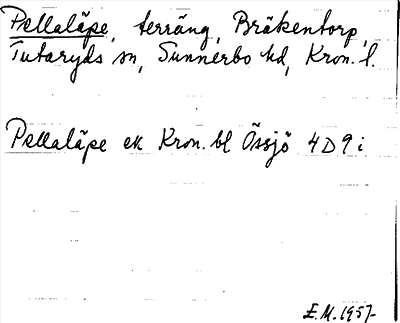 Pellaläpe, terräng, Bräkentorp,
Tutaryds sn, Sunnerbo hd, Kron. l.
Pellaläpe ek Kron. bl Össjö 4D9i
E.M. 1957